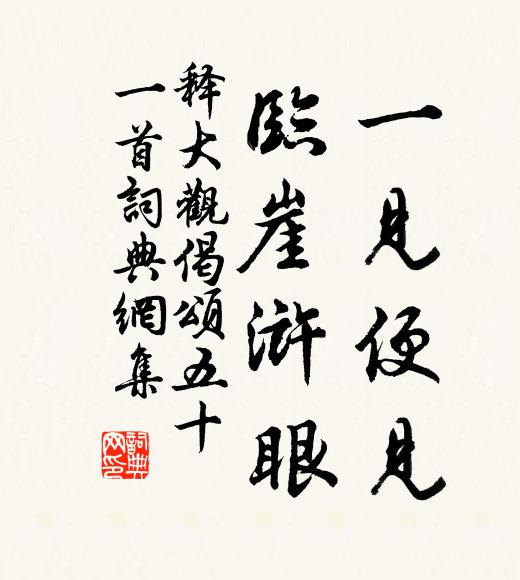 一見便見
臨崖滸眼
释大觀偈頌五十
一首詞典網集
詞典网印